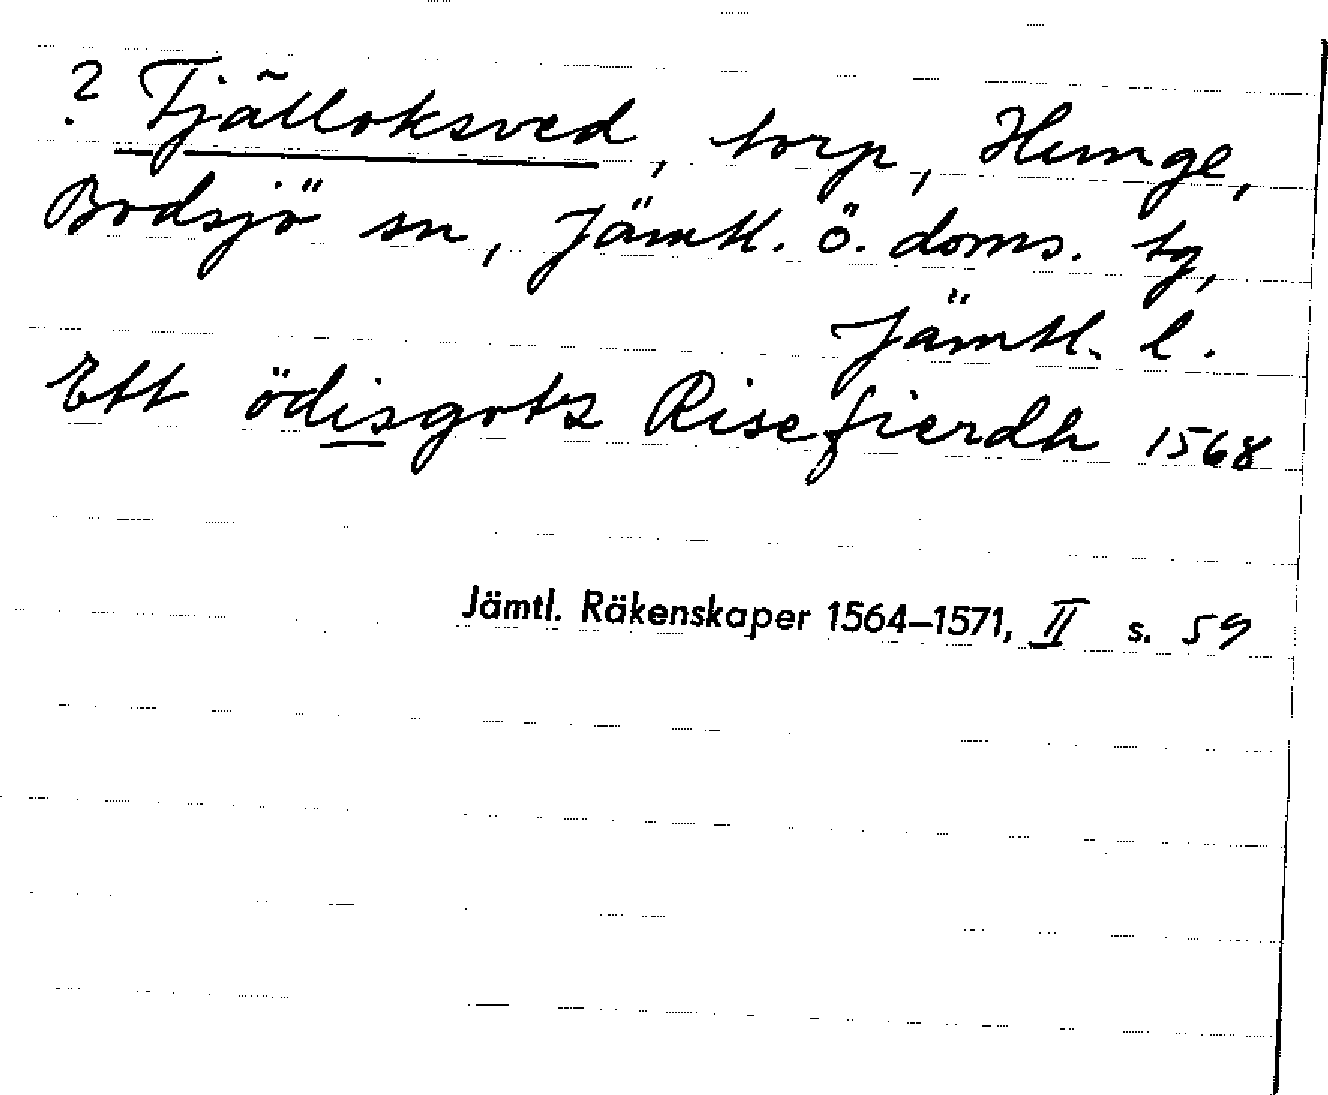 ? Tjälloksved, torp, Hunge,
Bodsjö sn, Jämtl. ö. doms. tg,
Jämtl. l.
Ett ödisgots Risefierdh 1568
Jämtl. Räkenskaper 1564–1571, II s. 59